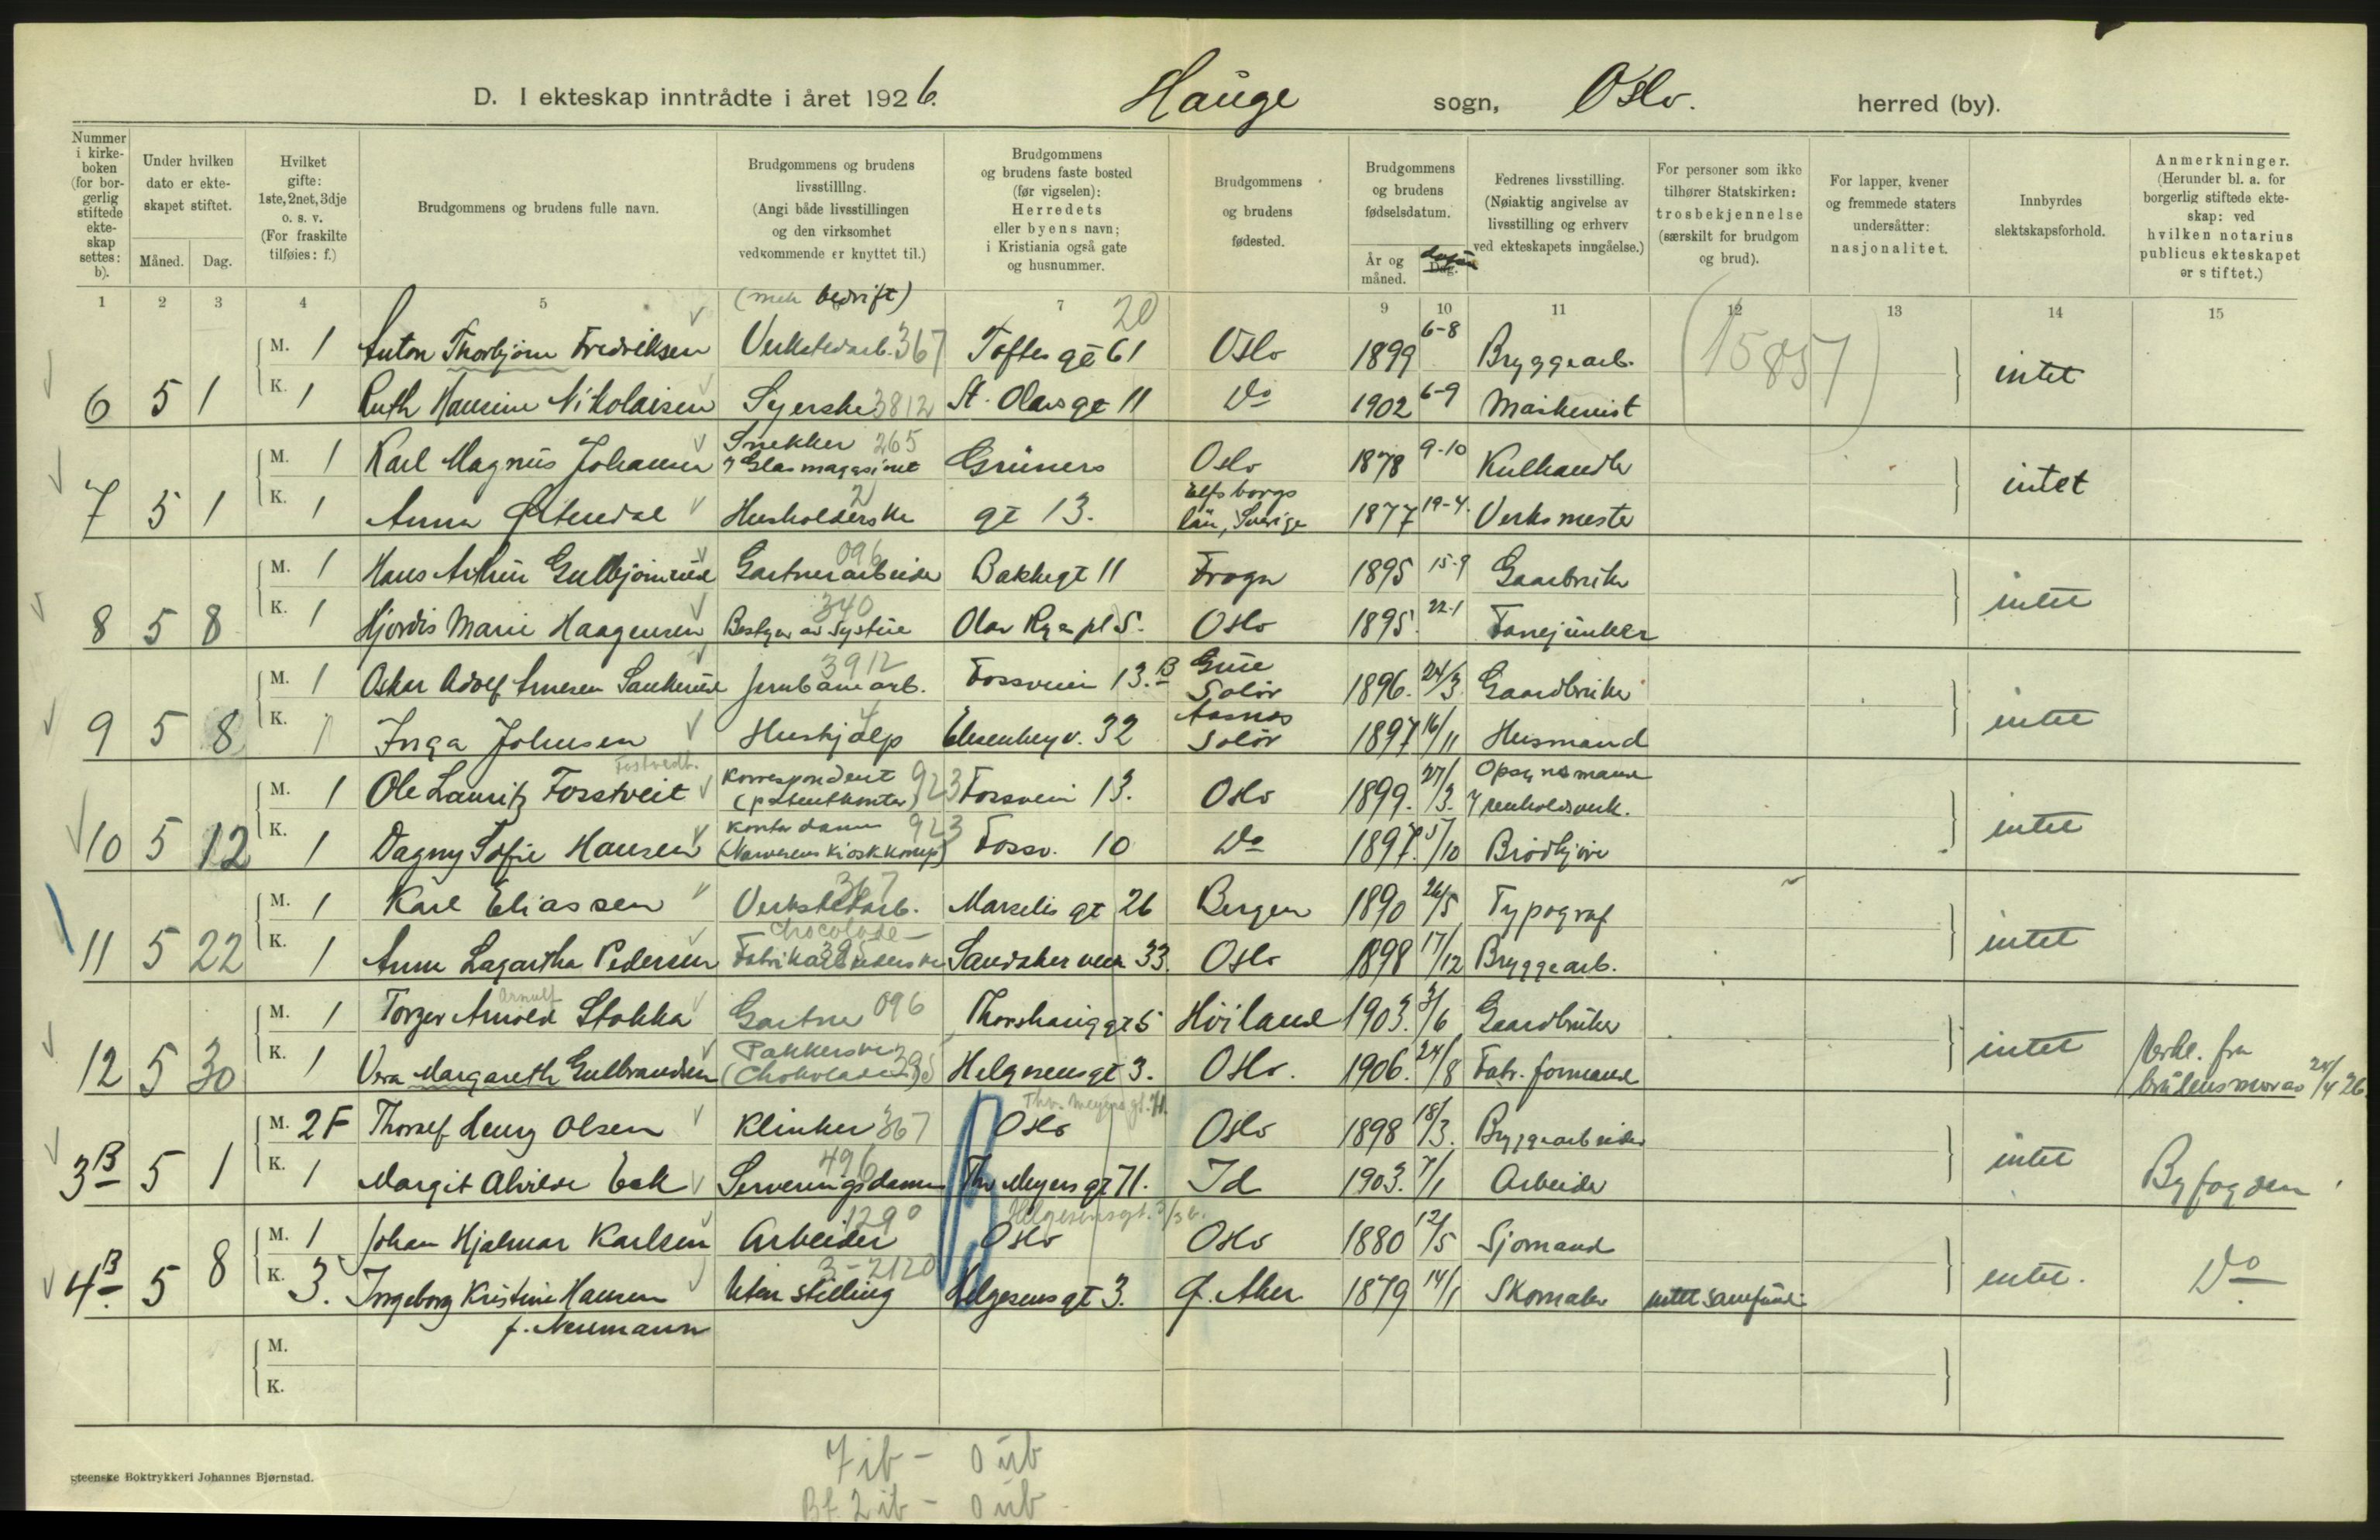 D. I ekteskap inntrådte i året 1926. Hauge sogn, Oslo. herred (by).
Nummer i kirkeboken (for borgerlig stiftede ekteskap settes: b).
Under hvilken dato er ekteskapet stiftet.
Måned. Dag.
Hvilket gifte: 1ste, 2net, 3dje o. s. v. (For fraskilte tilføies: f.)
Brudgommens og brudens fulle navn.
Brudgommens og brudens livsstilling. (Angi både livsstillingen og den virksomhet vedkommende er knyttet til.)
(men bedrift)
Brudgommens og brudens faste bosted (før vigselen): Herredets eller byens navn; i Kristiania også gate og husnummer.
Brudgommens og brudens fødested.
Brudgommens og brudens fødselsdatum.
År og måned. Dag.
Fedrenes livsstilling. (Nøiaktig angivelse av livsstilling og erhverv ved ekteskapets inngåelse.)
For personer som ikke tilhører Statskirken: trosbekjennelse (særskilt for brudgom og brud).
For lapper, kvener og fremmede staters undersåtter: nasjonalitet.
Innbyrdes slektskapsforhold.
Anmerkninger. (Herunder bl. a. for borgerlig stiftede ekteskap: ved hvilken notarius publicus ekteskapet er stiftet.)
1 2 3 4 5 7 9 10 11 12 13 14 15
20
M. 1 Anton Thorbjørn Fredriksen Verkstedarb. 367 Toftes gt 61 Oslo 1899 6-8 Bryggearb. (15857)
6 5 1 K. 1 Ruth Hansine Nikolaisen Syerske 3812 St. Olavs gt 11 Do 1902 6-9 Maskinist intet
M. 1 Karl Magnus Johansen Snekker 265 i Glasmagasinet Grüners Oslo 1878 9-10 Kulhandler
7 5 1 K. 1 Anna Husholderske 2 gt 13. Elfsborgs län, Sverige 1877 19-4. Verksmester intet
M. 1 Hans Arthur Gulbjørnrud Gartnerarbeider 096 Bakkegt 11 Frogn 1895 15-9 Gaardbruker
8 5 8 K. 1 Hjørdis Marie Haagensen Bestyrer av systue 340 Olav Ryes pl 5. Oslo 1895. 22-1 Fanejunker intet
M. 1 Oskar Adolf Arnesen Sankerud Jernbanearb. 3912 Fossveien 13.B Grue Solør 1896. 24/3 Gaardbruker
9 5 8 K. 1 Inga Johnsen Hushjælp Elisenbergv. 32 Aasnes Solør 1897 16/11 Husmand intet
M. 1 Ole Lauritz Forstveit Korrespondent (patentkontor) 923 Fossvein 13. Oslo 1899. 27/3. Opsynsmand i renholdsverk.
10 5 12 K. 1 Dagny Sofie Hansen Kontordame (Narvesens Kioskkomp) 923 Fossv. 10 Do 1897. 5/10 Brødkjører intet
M. 1 Karl Eliassen Verkstedarb. 367 Marselis gt 26 Bergen 1890 26/5 Typograf
11 5 22 K. 1 Anna Lagartha Pedersen Chocolade-Fabrikarbeiderske 395 Sandakerveien 33. Oslo 1898 17/12 Bryggearb. intet
M. 1 Torger Arnold Stokka Arnulf Gartner 096 Thorshauggt 5 Høiland 1903. 3/6 Gaardbruker
12 5 30 K. 1 Vera Margareth Gulbrandsen Pakkerske (Chokolade) 395 Helgesensgt 3. Oslo. 1906. 24/8 Fabr. formand intet 24/4 26.
M. 2 F Thoralf Henry Olsen Klinker 367 Oslo Thv. Meyers gt. 71. Oslo 1898 18/3. Bryggearbeider
3B 5 1 K. 1 Margit Alvilde Bak Serveringsdame 496 Thv Meyers gt 71. Id 1903. 7/1 Arbeider intet Byfogden
M. 1 Johan Hjalmar Karlsen Arbeider 1290 Oslo Helgesensgt. 3/36. Oslo 1880 12/5 Sjømand
4B. 5 8 K. 3. Ingeborg Kristine Hansen f. Neumann Uten stilling 3-2120 Helgesens gt 3. Ø. Aker 1879 14/1 Skomaker intet samfund intet. Do
M.
K.
7 ib - 0 ub
Bf. 2 ib - 0 ub
Boktrykkeri Johannes Bjørnstad.